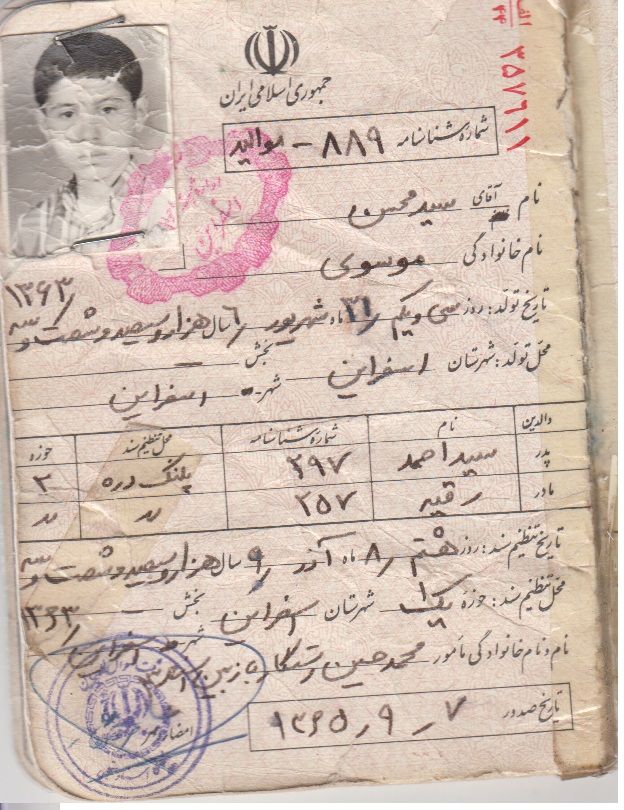 الف
۲۴
۳۵۷۶۱۱
جمهوری اسلامی ایران
شماره شناسنامه ۸۸۹ - موالید
نام آقای سید محسن
نام خانوادگی موسوی
۱۳۶۳/
تاریخ تولد: روز سی و یکم /۳۱ ماه شهریور /۶ سال هزار و سیصد و شصت و سه
محل تولد: شهرستان اسفراین بخش —
شهر - اسفراین
والدین نام شماره شناسنامه محل تنظیم سند حوزه
پدر سید احمد ۲۹۷ پلنگ دره ۳
مادر رقیه ۲۵۷ " "
تاریخ تنظیم سند: روز هشتم /۸ ماه آذر /۹ سال هزار و سیصد و شصت و سه
۱۳۶۳/
محل تنظیم سند: حوزه یک ۱ شهرستان اسفراین بخش —
شهر اسفراین
نام و نام خانوادگی مأمور محمد حسین
امضاء و مهر
تاریخ صدور ۷ ر ۹ ر ۱۳۶۵
اسفراین